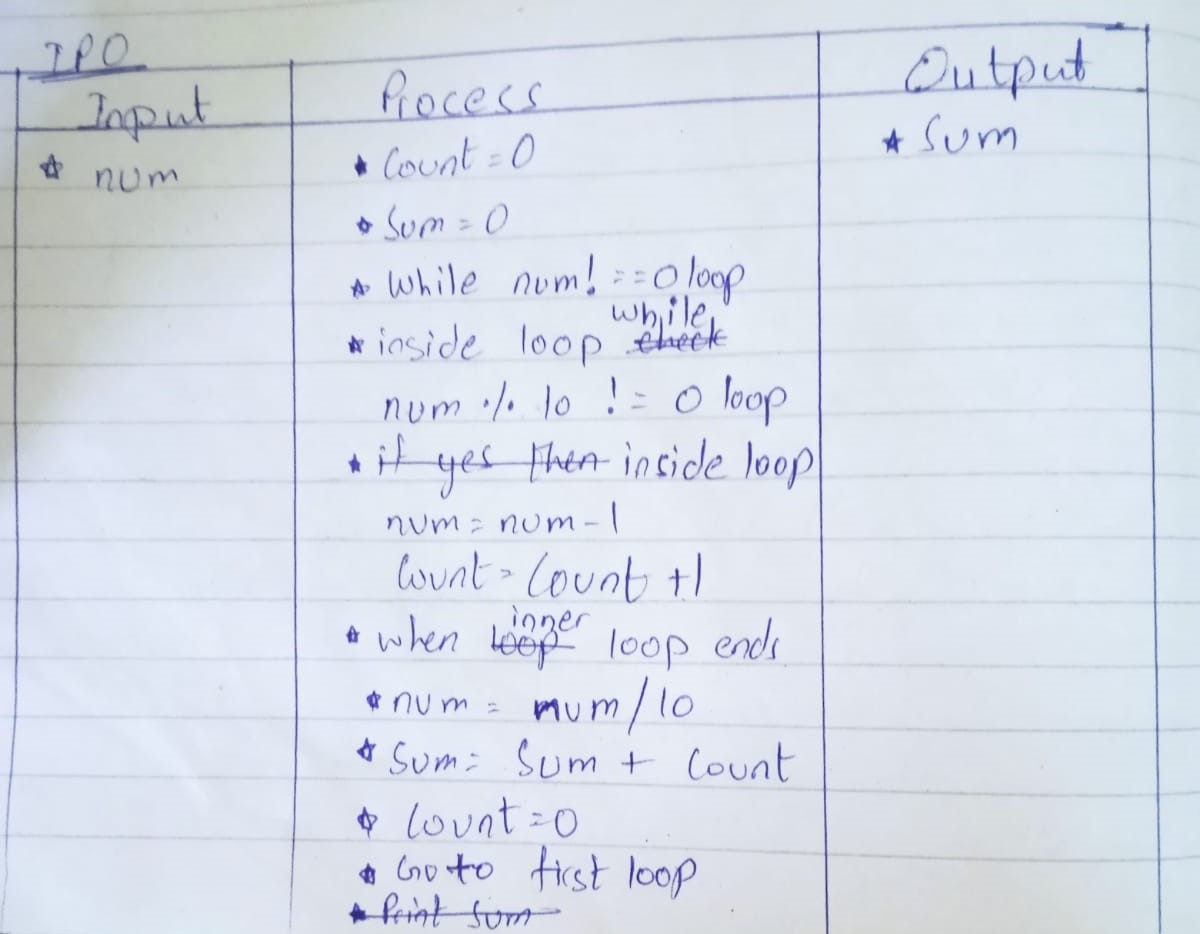 IPO
Input
Process
Output
* num
* Count = 0
* Sum
* Sum = 0
* While num! == 0 loop
* inside loop check while
num % 10 != 0 loop
* if yes then inside loop
num = num - 1
Count = Count + 1
* when loop inner loop ends
* num = num/10
* Sum = Sum + Count
* Count = 0
* Go to first loop
* Print Sum